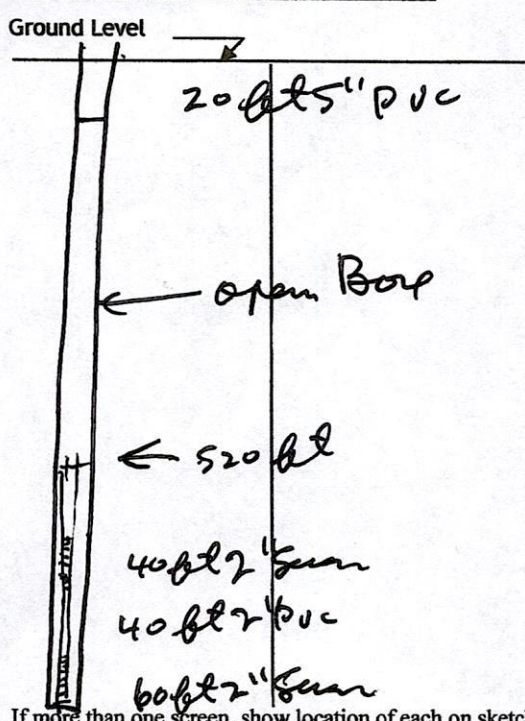 Ground Level
20 ft 5" PVC
open Bore
520 ft
40 ft 2" Screen
40 ft 2" PVC
60 ft 2" Screen
If more than one screen, show location of each on sketc